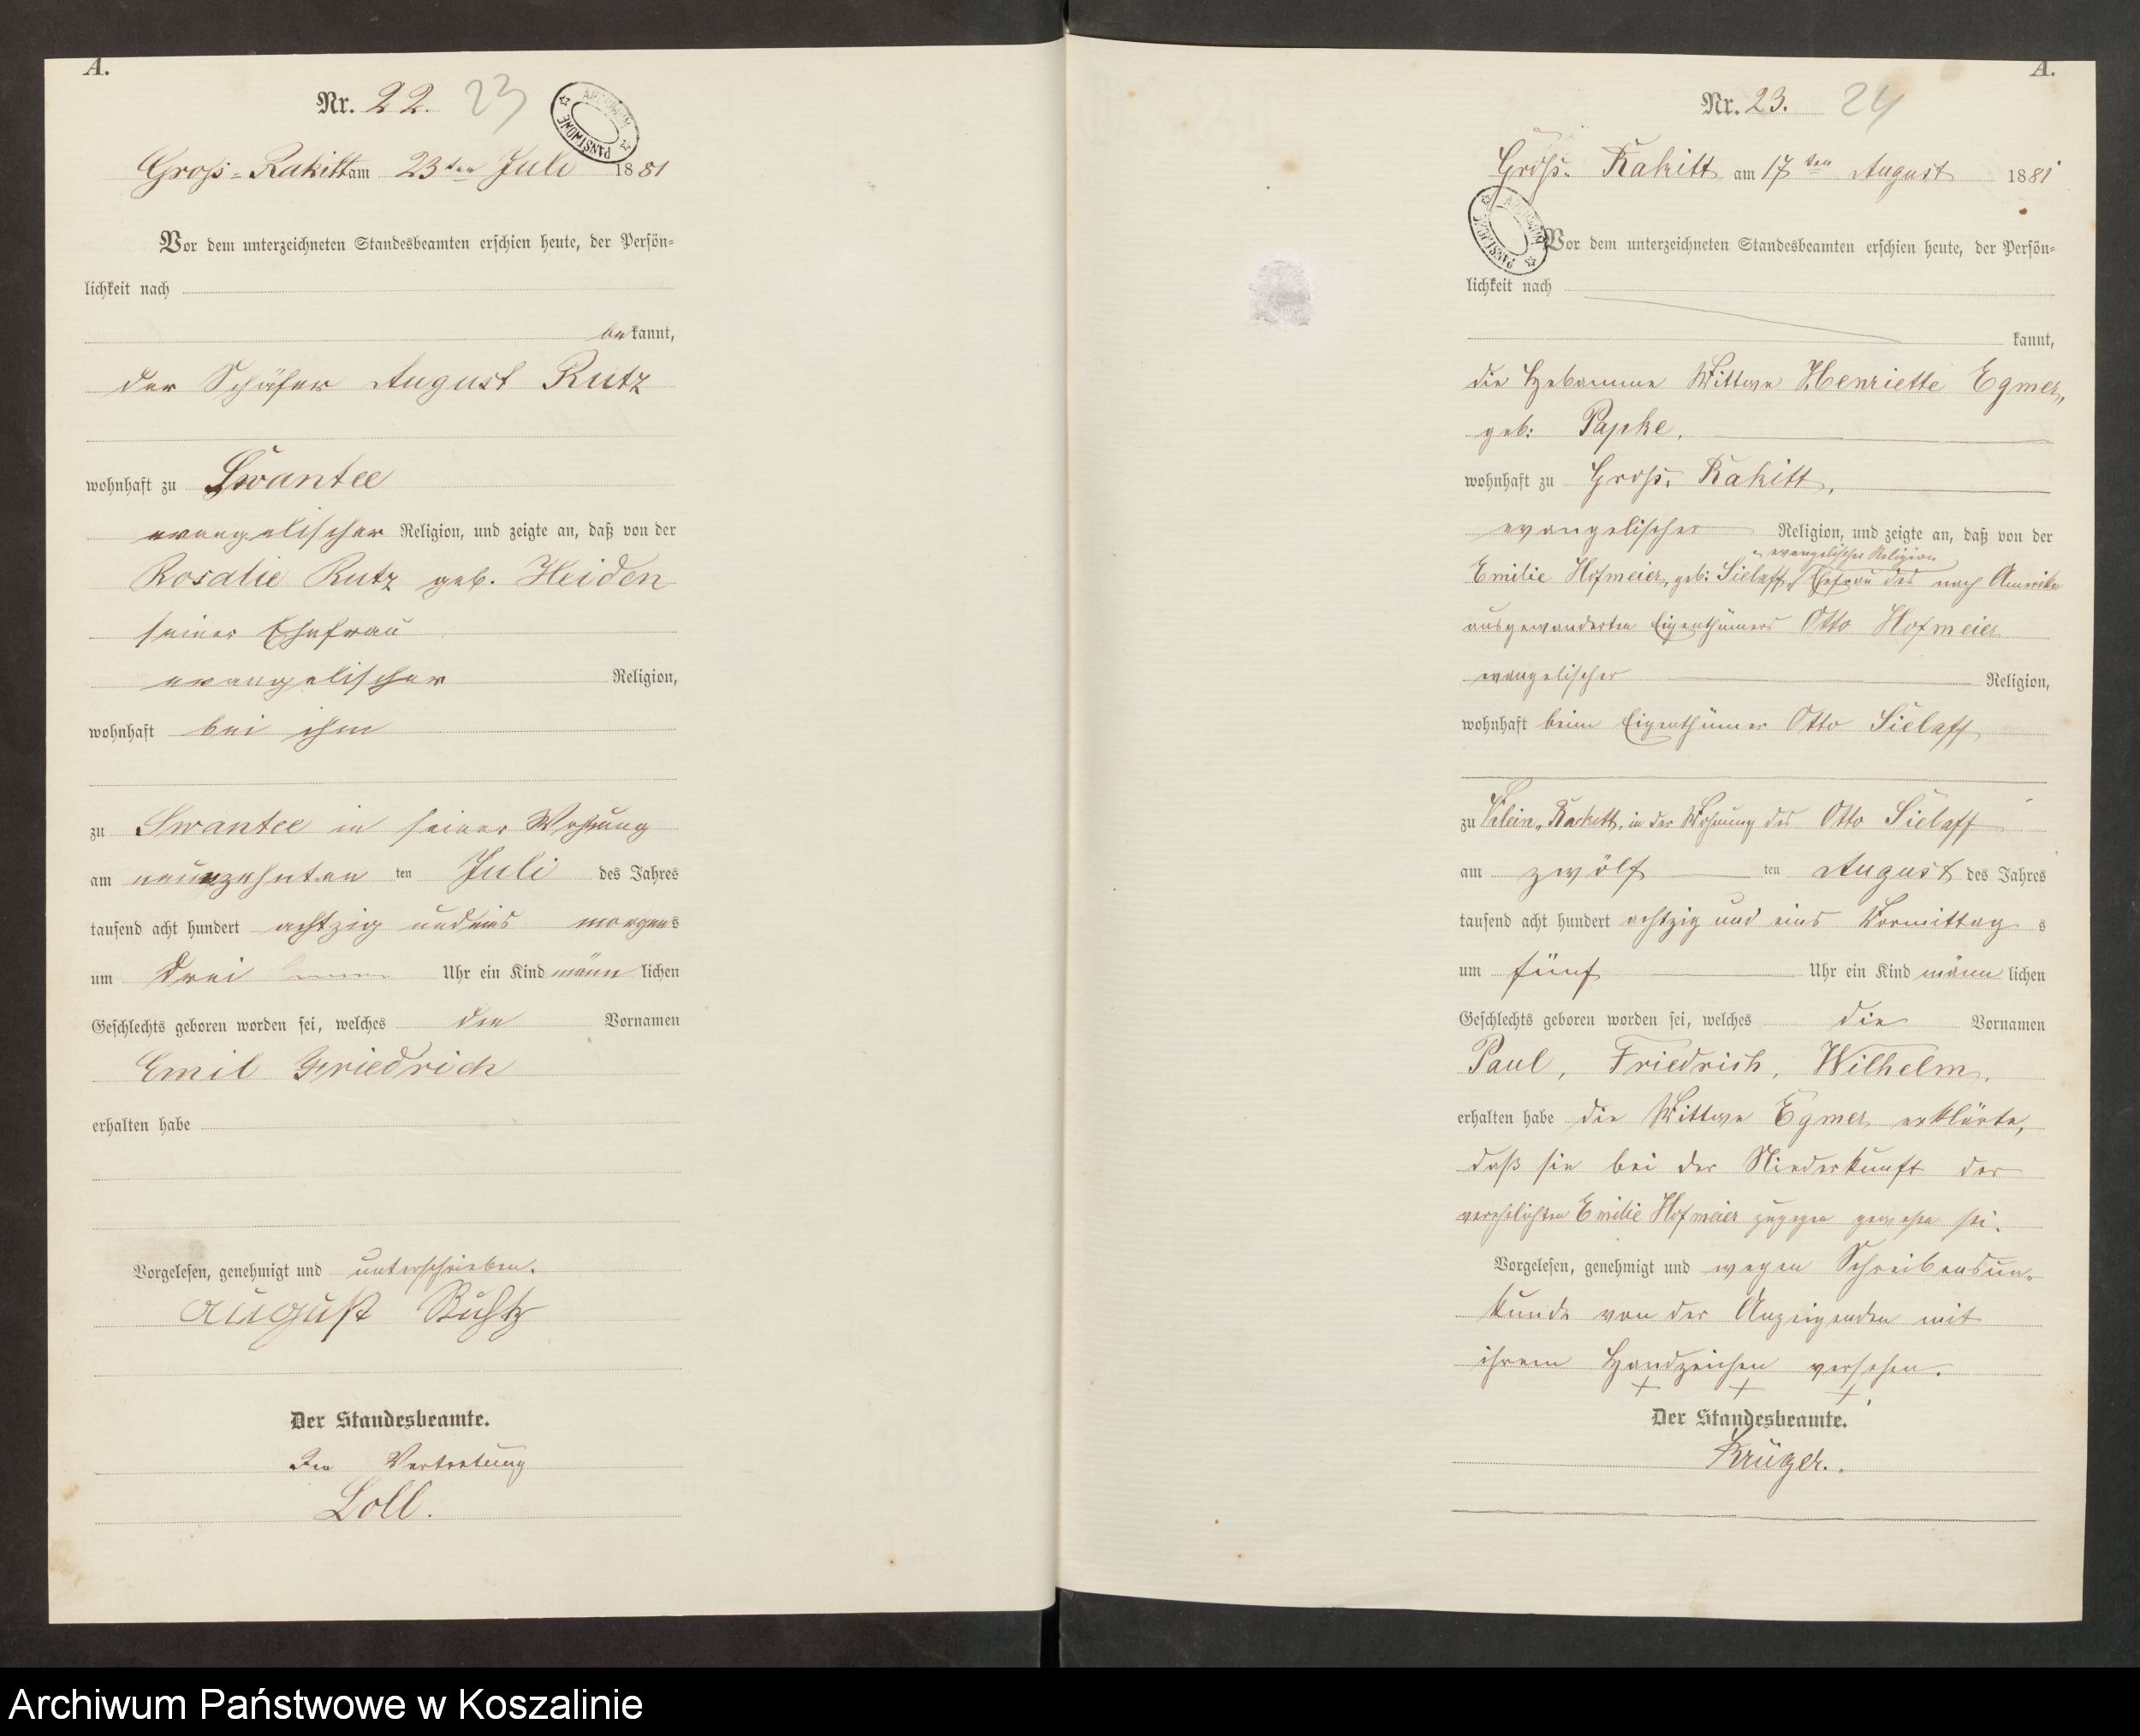 A.
Nr. 22. 23
ARCHIWUM PAŃSTWOWE
Gross-Rakitt am 23ten Juli 1881
Vor dem unterzeichneten Standesbeamten erschien heute, der Persön-
lichkeit nach
bekannt,
der Schäfer August Rutz
wohnhaft zu Swantee
evangelischer Religion, und zeigte an, daß von der
Rosalie Rutz geb. Heiden
seiner Ehefrau
evangelischer Religion,
wohnhaft bei ihm
zu Swantee in seiner Wohnung
am neunzehnten ten Juli des Jahres
tausend acht hundert achtzig und eins morgens
um drei Uhr ein Kind männlichen
Geschlechts geboren worden sei, welches den Vornamen
Emil Friedrich
erhalten habe
Vorgelesen, genehmigt und unterschrieben.
August Ruhtz
Der Standesbeamte.
In Vertretung
Loll.
A.
Nr. 23. 24
Groß- Rakitt am 17ten August 1881
ARCHIWUM PAŃSTWOWE
Vor dem unterzeichneten Standesbeamten erschien heute, der Persön-
lichkeit nach
kannt,
die Hebamme Wittwe Henriette Egmer,
geb: Papke,
wohnhaft zu Groß- Rakitt,
evangelischer Religion, und zeigte an, daß von der
evangelischer Religion
Emilie Hofmeier, geb: Sielaff, Ehefrau des nach Amerika
ausgewanderten Eigenthümers Otto Hofmeier
evangelischer Religion,
wohnhaft beim Eigenthümer Otto Sielaff
zu Klein-Rackitt, in der Wohnung des Otto Sielaff
am zwölf ten August des Jahres
tausend acht hundert achtzig und eins Vormittags
um fünf Uhr ein Kind männlichen
Geschlechts geboren worden sei, welches die Vornamen
Paul, Friedrich, Wilhelm,
erhalten habe die Wittwe Egmer erklärte,
daß sie bei der Niederkunft der
verehelichten Emilie Hofmeier zugegen gewesen sei.
Vorgelesen, genehmigt und wegen Schreibensun-
kunde von der Anzeigenden mit
ihrem Handzeichen versehen.
+ + +
Der Standesbeamte.
Krüger.
Archiwum Państwowe w Koszalinie